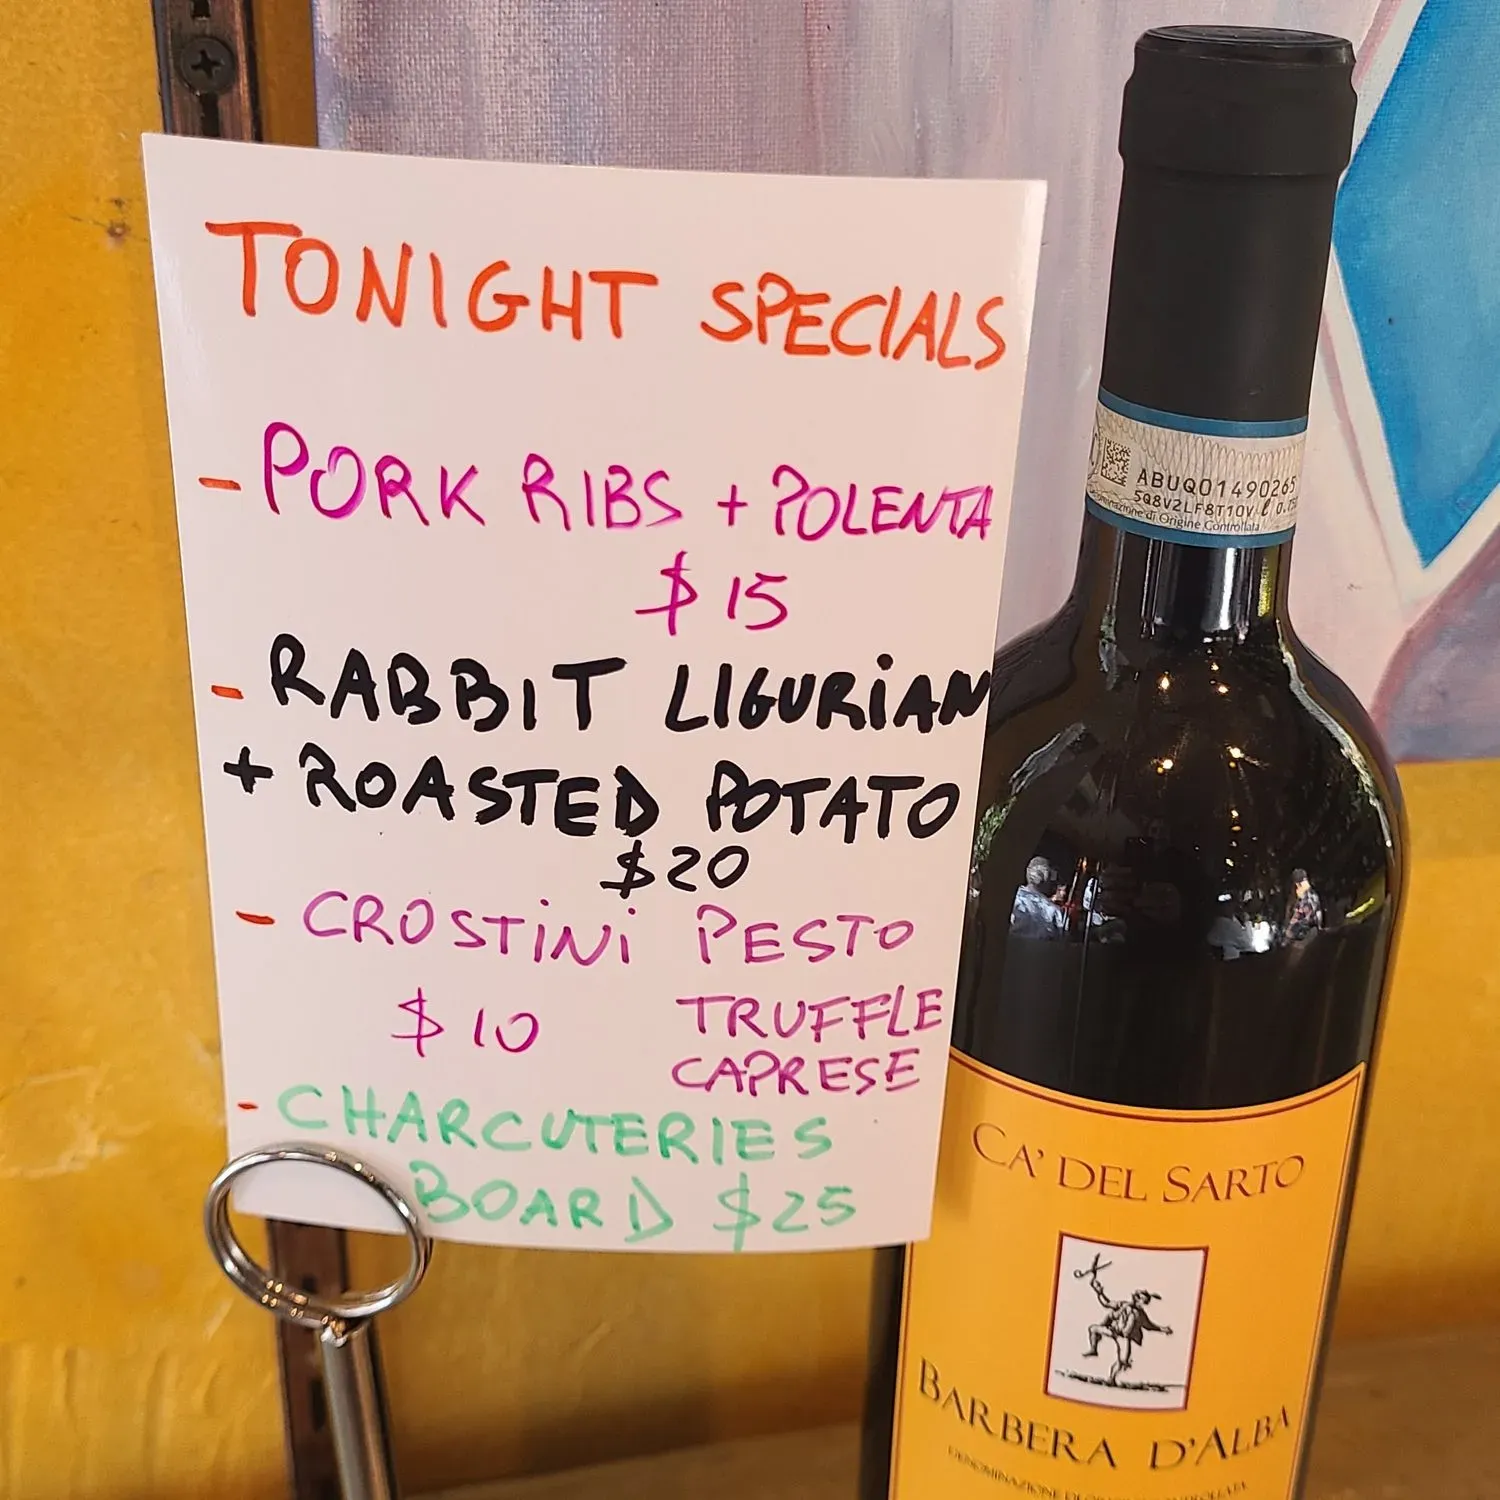 TONIGHT SPECIALS
- PORK RIBS + POLENTA
$ 15
- RABBIT LIGURIAN
+ ROASTED POTATO
$20
- CROSTINI PESTO
$10 TRUFFLE
CAPRESE
- CHARCUTERIES
BOARD $25
ABUQ01490265
5Q8V2LF8T10V ℓ
di Origine Controllata
CA' DEL SARTO
BARBERA D'ALBA
DENOMINAZIONE